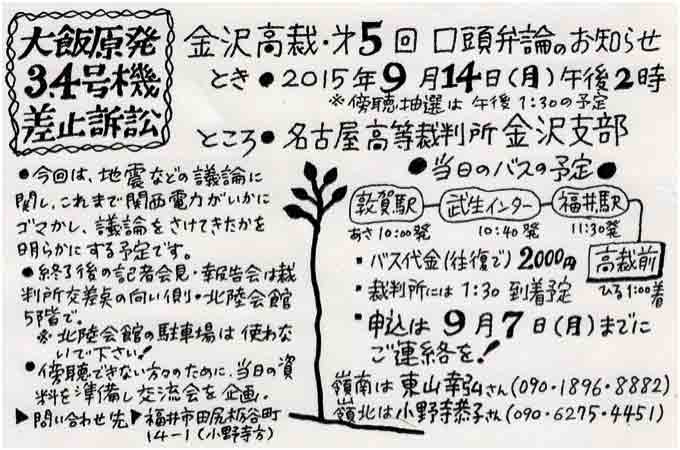 大飯原発
3,4号機
差止訴訟
金沢高裁・第5回 口頭弁論のお知らせ
とき●2015年9月14日(月)午後2時
※傍聴抽選は午後1:30の予定
ところ●名古屋高等裁判所金沢支部
●今回は、地震などの議論に
関し、これまで関西電力がいかに
ゴマかし、議論をさけてきたかを
明らかにする予定です。
●終了後の記者会見・報告会は裁
判所交差点の向い側・北陸会館
5階で。
※北陸会館の駐車場は使わな
いで下さい!
●傍聴できない方々のために、当日の資
料を準備し交流会を企画。
▶問い合わせ先▶福井市田尻栃谷町
14-1(小野寺方)
●当日のバスの予定●
敦賀駅 武生インター 福井駅
あさ10:00発 10:40発 11:30発
高裁前
ひる1:00着
・バス代金(往復で)2000円
・裁判所には1:30到着予定
・申込は9月7日(月)までに
ご連絡を!
嶺南は東山幸弘さん(090・1896・8882)
嶺北は小野寺恭子さん(090・6275・4451)